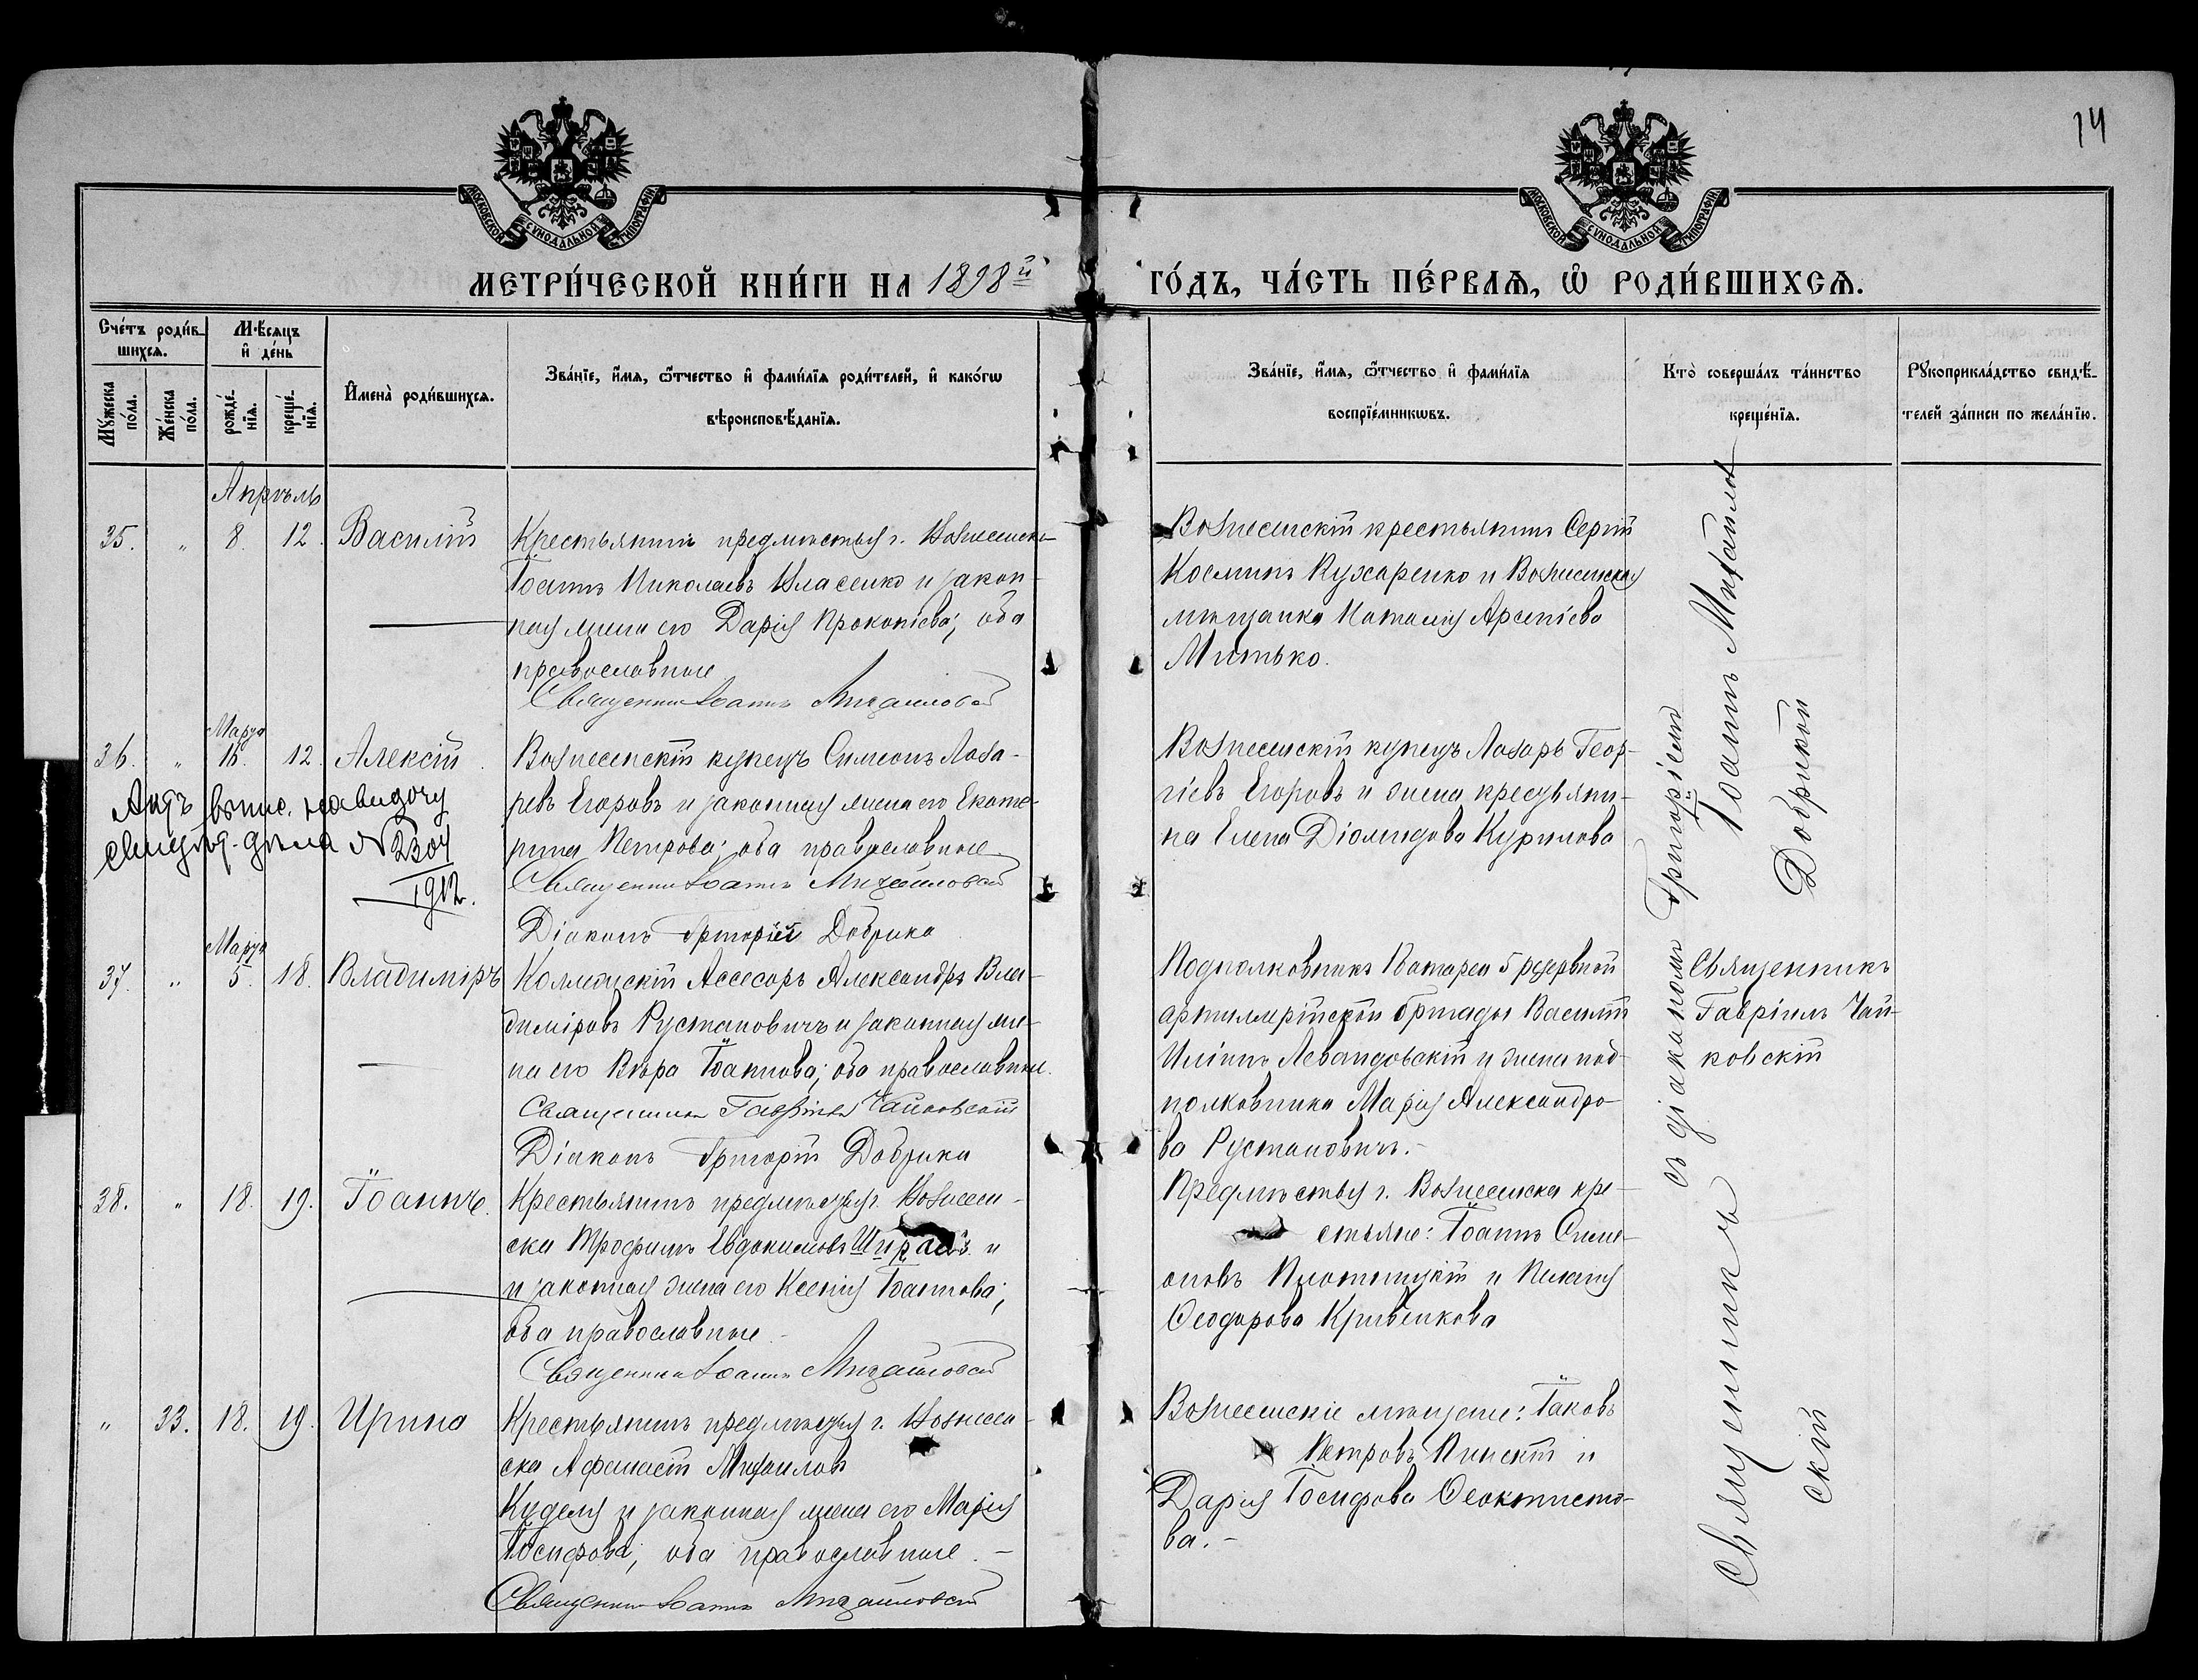 14
МОСКОВСКОЙ СѴНОДАЛЬНОЙ ТИПОГРАФІИ
МОСКОВСКОЙ СѴНОДАЛЬНОЙ ТИПОГРАФІИ
МЕТРИ́ЧЕСКОЙ КНИ́ГИ НА 1898й
ГО́ДЪ, ЧА́СТЬ ПЕ́РВАѦ, Ѡ҆ РОДИ́ВШИХСѦ.
Сче́тъ роди́в-
шихсѧ.
Мꙋ́жеска
по́ла.
Же́нска
по́ла.
Мѣ́сѧцъ
и҆ де́нь
рожде́-
нїѧ.
креще́-
нїѧ.
И҆мена̀ роди́вшихсѧ.
Зва́нїе, и҆́мѧ, ѻ҆́тчество и҆ фами́лїѧ роди́телей, и҆ како́гѡ
вѣроисповѣ́данїѧ.
Зва́нїе, и҆́мѧ, ѻ҆́тчество и҆ фами́лїѧ
воспрїе́мникѡвъ.
Кто̀ соверша́лъ та́инство
креще́нїѧ.
Рꙋкоприкла́дство свидѣ́-
телей за́писи по жела́нїю.
Апрѣль
35. " 8. 12. Василій
Крестьянинъ предмѣстья г. Вознесенска
Іоаннъ Николаевъ Власенко и закон-
ная жена его Дарія Прокопіева; оба
православные
Священникъ Іоаннъ Михайловскій
Вознесенскій крестьянинъ Сергій
Косминъ Кухаренко и Вознесенская
мѣщанка Наталія Арсеніева
Митько.
Марта
36. " 16. 12. Алексій
Актъ выпис. на выдачу
свидѣт. дѣла № 2304
1912.
Вознесенскій купецъ Симеонъ Лаза-
ревъ Егоровъ и законная жена его Екате-
рина Петрова; оба православные
Священникъ Іоаннъ Михайловскій
Діаконъ Григорій Добрика
Вознесенскій купецъ Лазарь Геор-
гіевъ Егоровъ и жена крестьяни-
на Елена Діомидова Курилова
Марта
37. " 5. 18. Владиміръ
Коллежскій Ассесоръ Александръ Вла-
диміровъ Рустановичъ и законная же-
на его Вѣра Іоаннова; оба православные.
Священникъ Гавріилъ Чайковскій
Діаконъ Григорій Добрика
Подполковникъ Батареи 5 резервной
артиллерійской бригады Василій
Иліинъ Левандовскій и жена под-
полковника Марія Александро-
ва Рустановичъ.-
Священникъ
Гавріилъ Чай-
ковскій
38. " 18. 19. Іоаннъ.
Крестьянинъ предмѣстья г. Вознесен-
ска Трофимъ Евдокимовъ и
и законная жена его Ксенія Іоаннова;
оба православные.-
Священникъ Іоаннъ Михайловскій
Предмѣстья г. Вознесенска кре-
стьяне: Іоаннъ Симе-
оновъ Плотницкій и Пелагія
Ѳеодорова Кривенкова
" 33. 18. 19. Ирина
Крестьянинъ предмѣстья г. Вознесен-
ска Афанасій Михаиловъ
Куделя и законная жена его Марія
Іосифова, оба православные.-
Священникъ Іоаннъ Михайловскій
Вознесенскіе мѣщане: Іаковъ
Петровъ Пинскій и
Дарія Іосифова Ѳеоктисто-
ва.-
Священникъ Іоаннъ Михайлов-
скій
съ діакономъ Григоріемъ
Добрикой